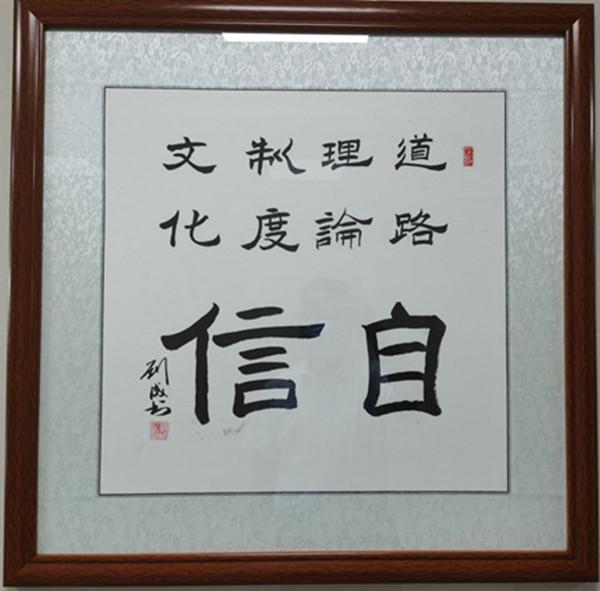 道路
理論
制度
文化
自信
刘成书